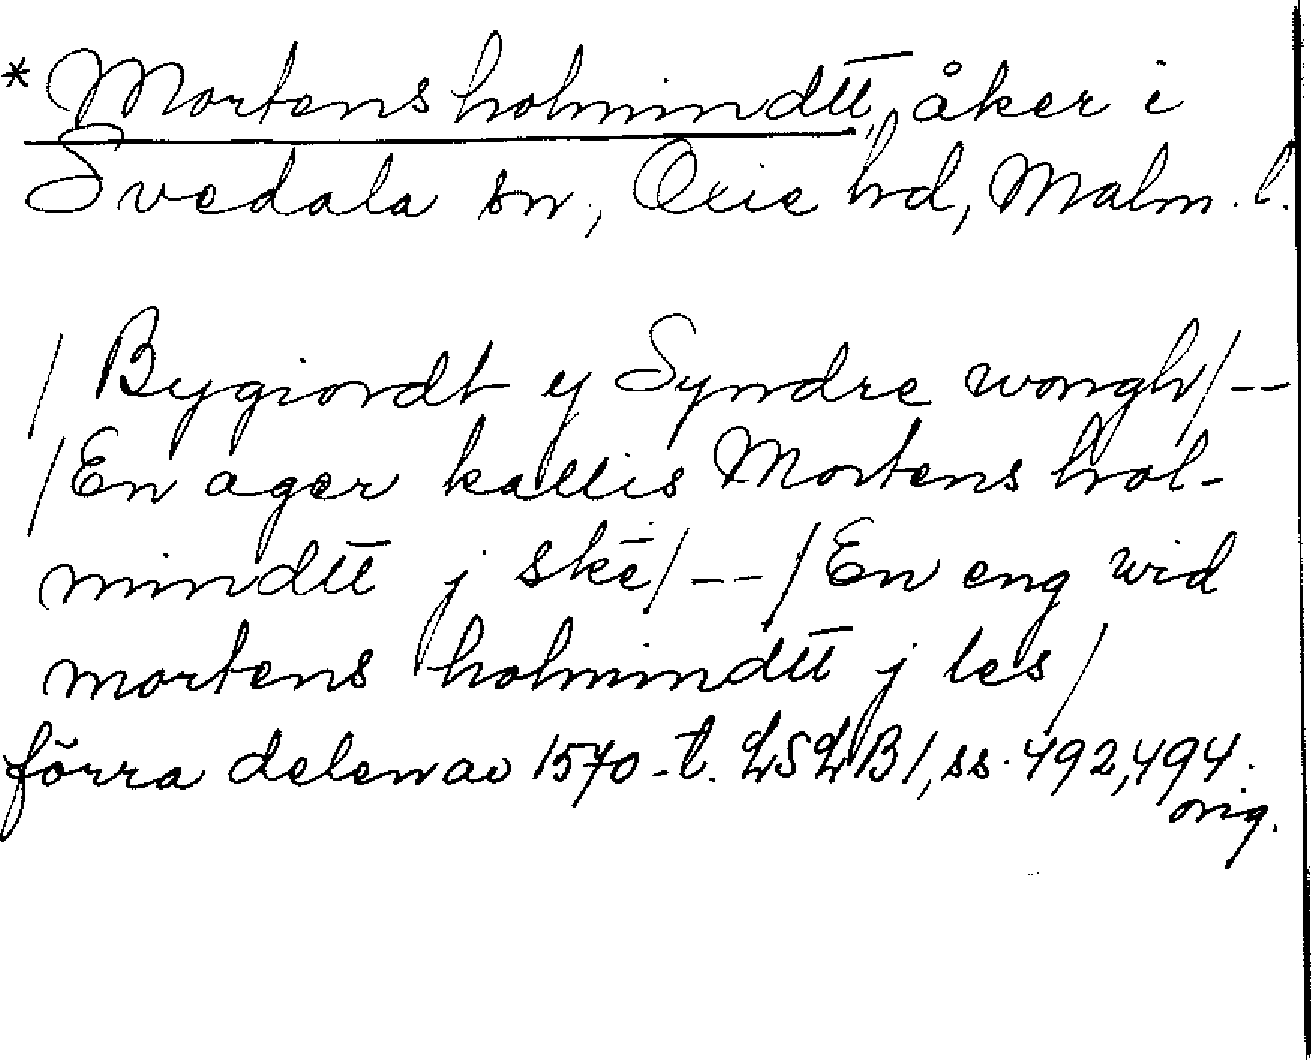 * Mortens holmindtt̅, åker i
Svedala sn, Oxie hd, Malm. l.
/ Bygiordt y Syndre wongh/--
/En ager kallis Mortens hol-
mindtt̅ j skē/--/En eng wid
mortens holmindtt̅ j les/
förra delen av 1570-t. LSLB1, ss. 492, 494.
orig.